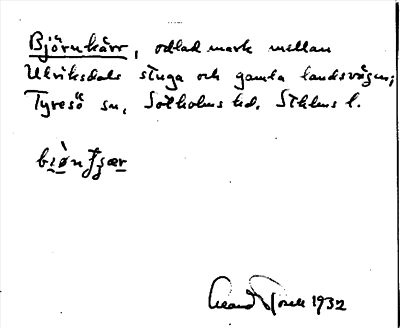 Björnkärr, odlad mark mellan
Ulriksdals stuga och gamla landsvägen;
Tyresö sn, Sotholms hd, Sthlms l.
1932